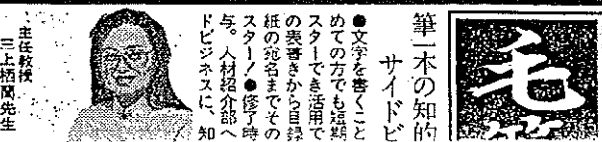 毛筆
筆一本の知的
サイドビ
●文字を書くこと
めての方でも短期
スターでき活用で
の表書きから目録
紙の宛名までその
スター！●修了時
与。人材紹介部へ
ドビジネスに、知
主任教授
三上栖蘭先生